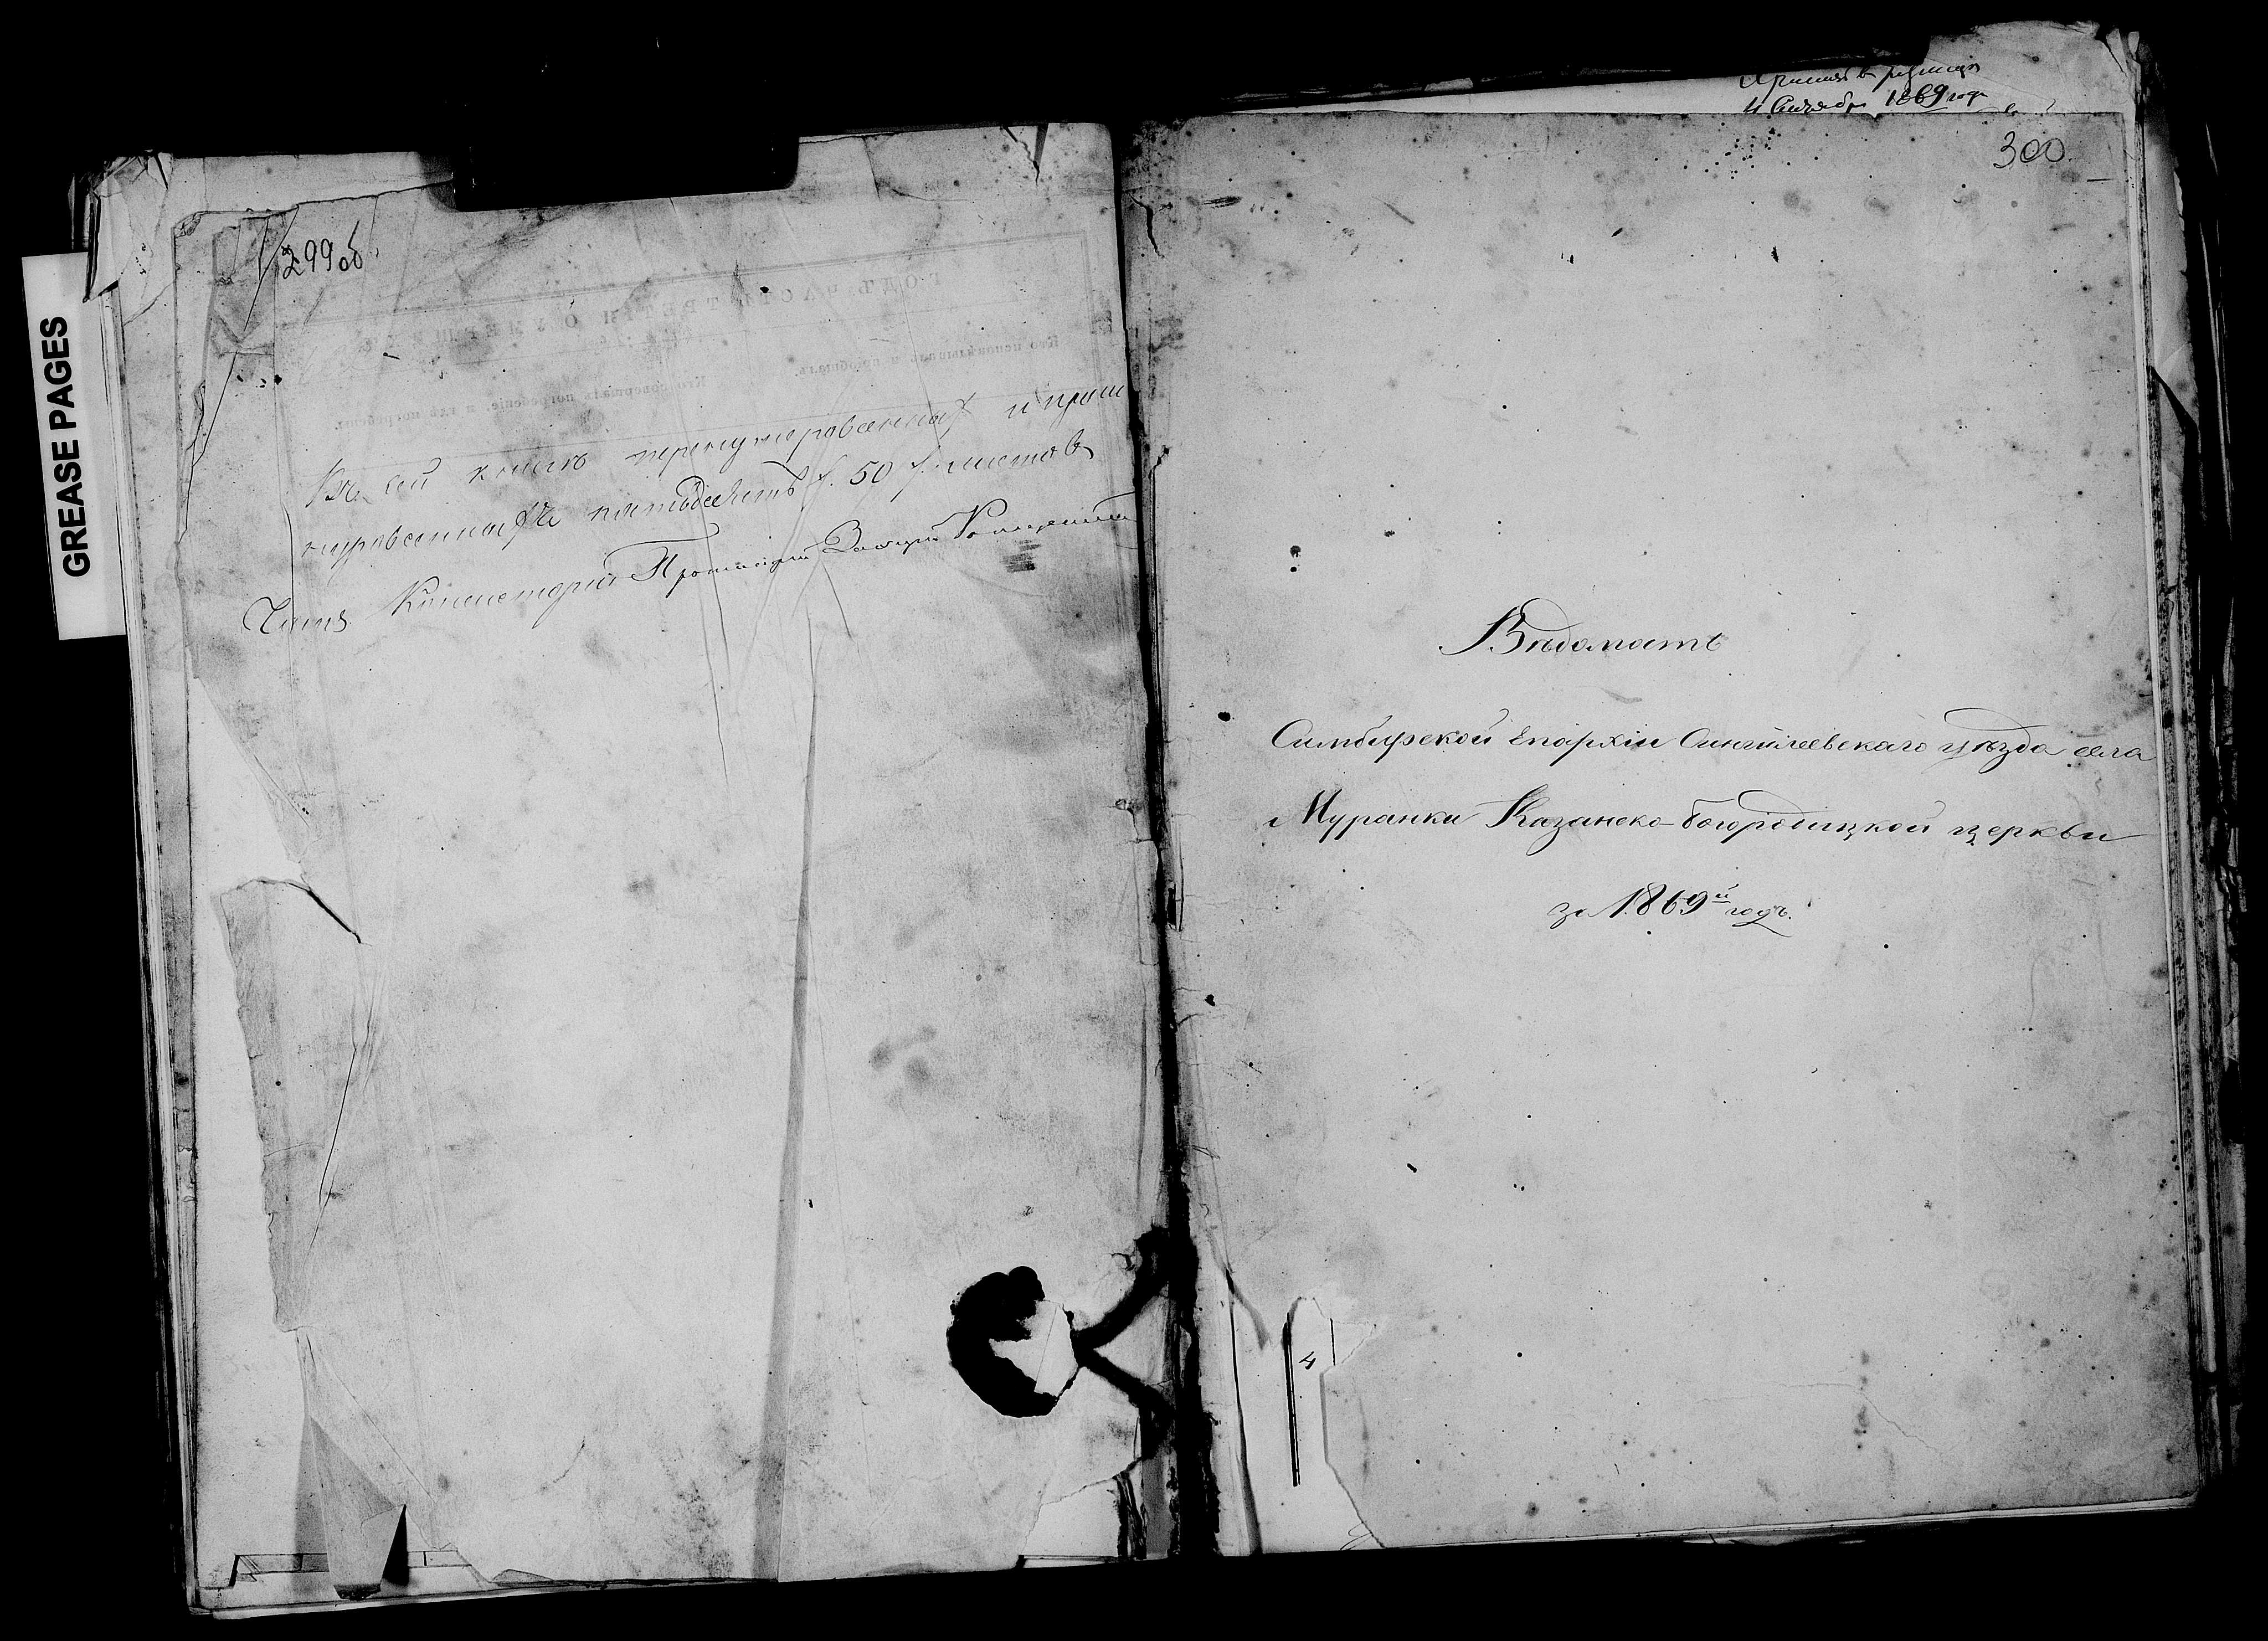 GREASE PAGES
299 об
Въ сей книгѣ перенумерованныхъ и прош
нурованныхъ пятьдесятъ /. 50 /. листовъ
Членъ Консисторіи Протоіерей
1869 года
300.
Вѣдомость
Симбирской Епархіи Сингилеевскаго уѣзда села
Муранки Казанско-богородицкой церкви
за 1869й годъ.
4